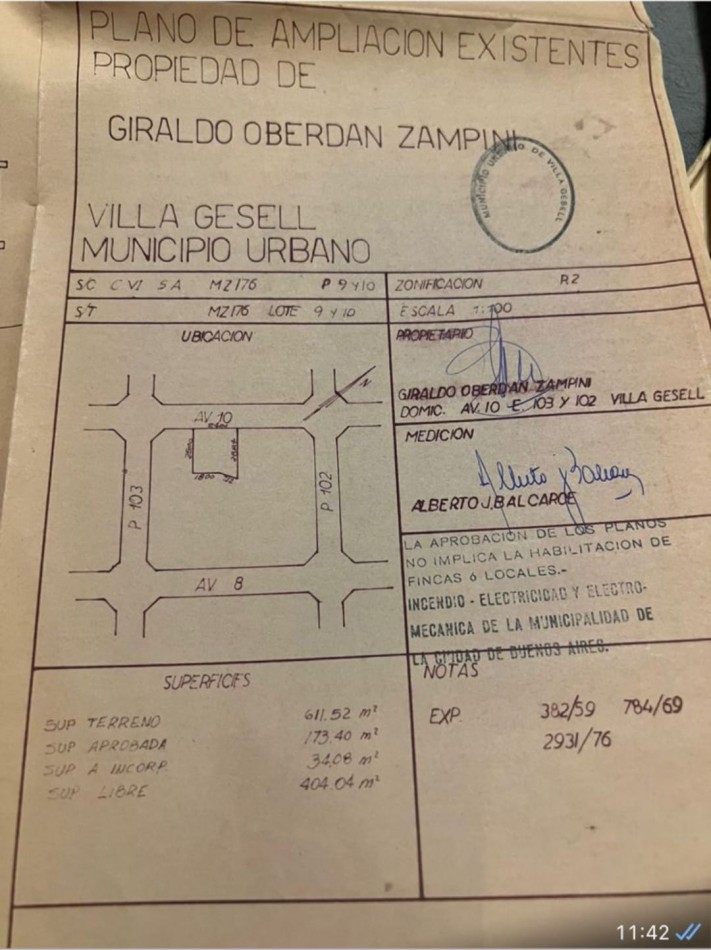 PLANO DE AMPLIACION EXISTENTES
PROPIEDAD DE
GIRALDO OBERDAN ZAMPINI
MUNICIPIO URBANO DE VILLA GESELL
VILLA GESELL
MUNICIPIO URBANO
SC C VI S A MZ 176 P 9 Y 10
ZONIFICACION R2
S/T MZ 176 LOTE 9 Y 10
ESCALA 1:100
UBICACION
N
AV. 10
P 103
P 102
AV 8
PROPIETARIO
GIRALDO OBERDAN ZAMPINI
DOMIC. AV. 10 E. 103 Y 102 VILLA GESELL
MEDICION
ALBERTO J. BALCARCE
LA APROBACIÓN DE LOS PLANOS
NO IMPLICA LA HABILITACION DE
FINCAS ó LOCALES.-
INCENDIO - ELECTRICIDAD Y ELECTRO-
MECANICA DE LA MUNICIPALIDAD DE
LA CIUDAD DE BUENOS AIRES.
SUPERFICIES
SUP TERRENO 611.52 m²
SUP APROBADA 173.40 m²
SUP A INCORP. 34.08 m²
SUP LIBRE 404.04 m²
NOTAS
EXP. 382/59 784/69
2931/76
11:42